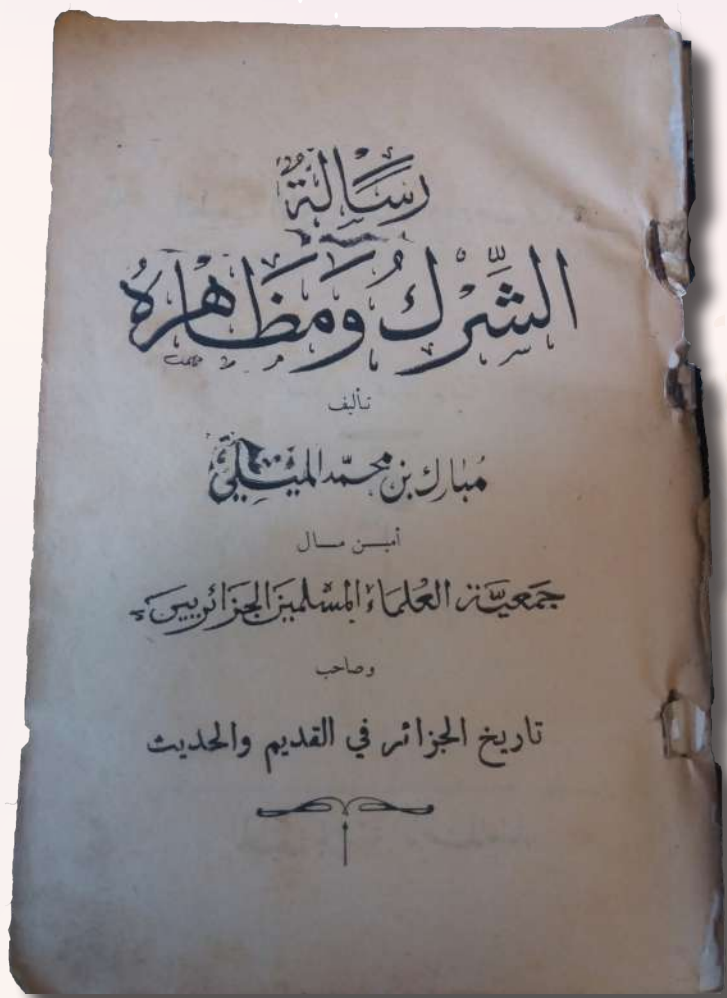 رِسَالَةُ
الشِّرْكِ وَمَظَاهِرُهُ
تأليف
مُبارك بن محمّد الميلي
أميـن مـال
جَمعيَّة العُلمَاء المسلمين الجزائريين
وصاحب
تاريخ الجزائر في القديم والحديث